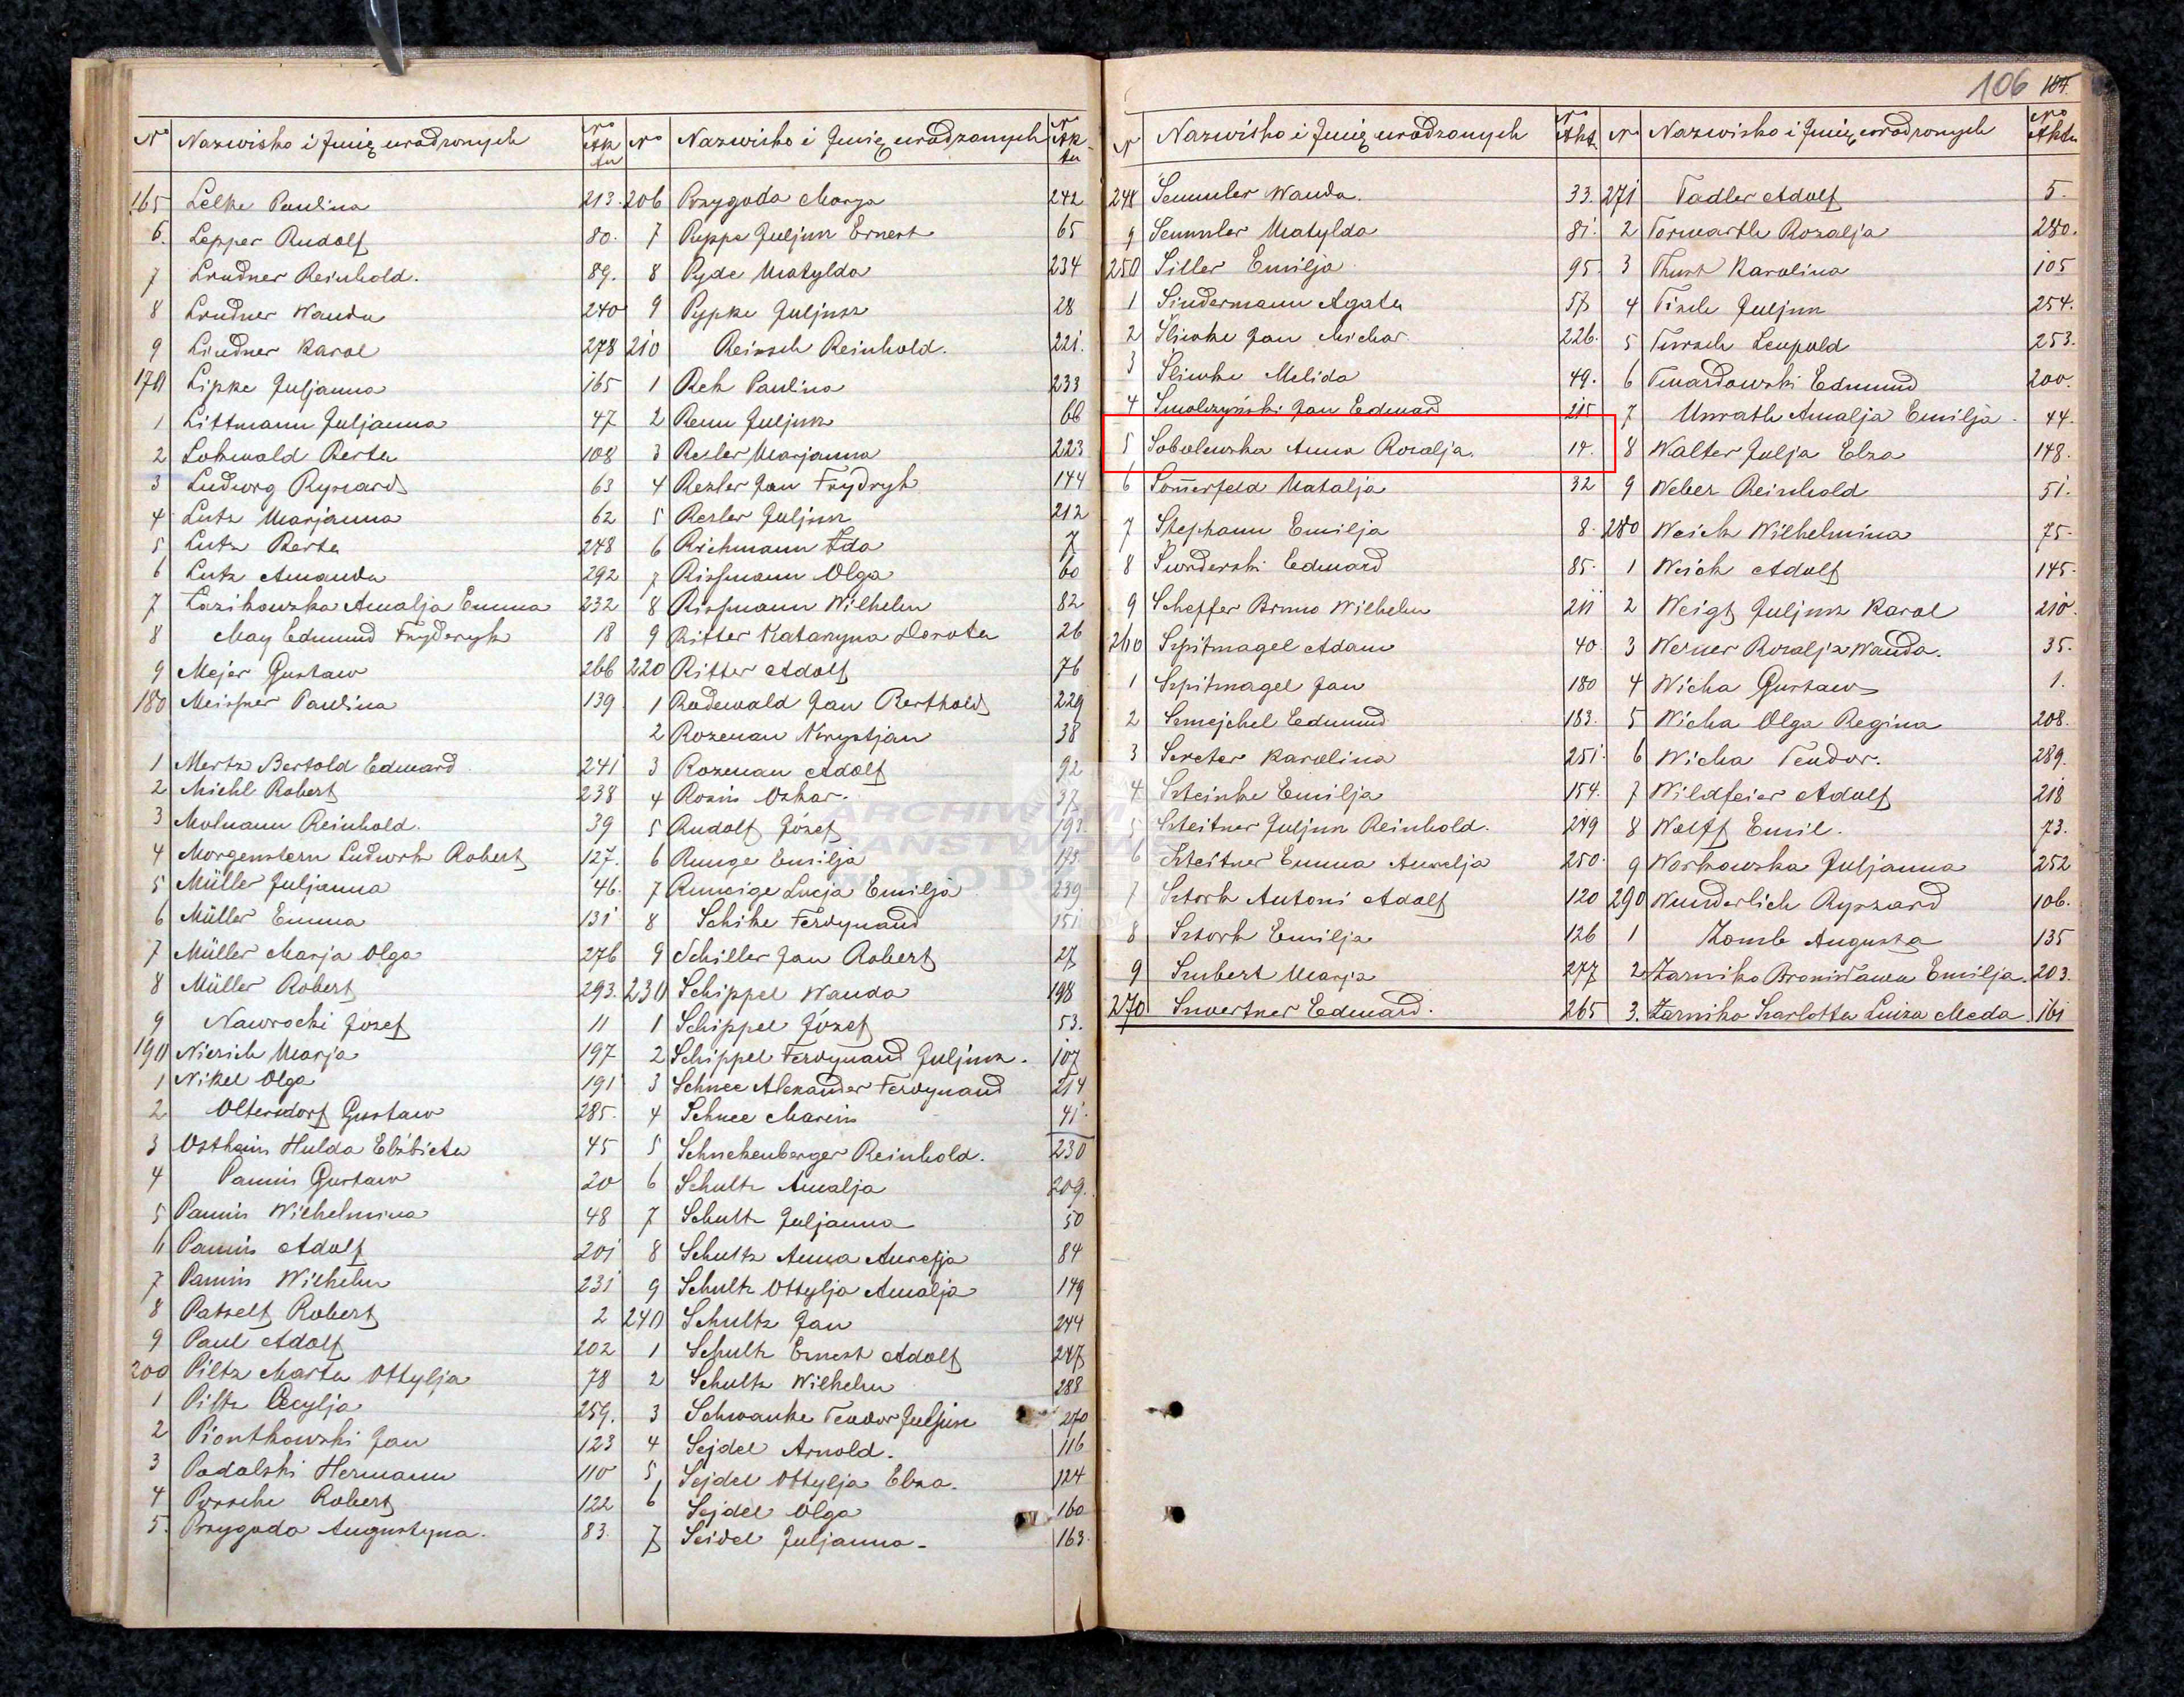 106 104.
No Nazwisko i Jmię urodzonych No Aktu
165 Lelke Paulina 213.
6. Lepper Rudolf 80.
7 Lindner Reinhold. 89.
8 Lindner Wanda 240
9 Lindner Karol 278
170 Lipke Juljanna 165
1 Littmann Juljanna 47
2 Lohwald Berta 108
3 Ludwig Ryszard 63
4 Lutz Marjanna 62
5 Lutz Berta 248
6 Lutz Amanda 292
7 Łazikowska Amalja Emma 232
8 May Edmund Fryderyk 18
9 Mejer Gustaw 266
180 Meissner Paulina 139
1 Mertz Bertold Edward 241
2 Michl Robert 238
3 Molmann Reinhold. 39
4 Morgenstern Ludwik Robert 127.
5 Müller Juljanna 46.
6 Müller Emma 131
7 Müller Marja Olga 276
8 Müller Robert 293.
9 Nawrocki Józef 11
190 Niersich Marja 197
1 Nikel Olga 191
2 Oltersdorf Gustaw 285.
3 Ostheim Hulda Elżbieta 45
4 Pannis Gustaw 20
5 Pannis Wilhelmina 48
6 Pannis Adolf 201
7 Pannis Wilhelm 231
8 Patzelt Robert 2
9 Paul Adolf 202
200 Piltz Marta Ottylja 78
1 Piltz Cecylja 259.
2 Piontkowski Jan 123
3 Podolski Hermann 110
4 Porsche Robert 122
5. Przygoda Augustyna. 83.
No Nazwisko i Jmię urodzonych No Aktu
206 Przygoda Marja 242
7 Puppe Juljusz Ernest 65
8 Pyde Matylda 234
9 Pypke Juljusz 28
210 Reinsch Reinhold. 221.
1 Rek Paulina 233
2 Renn Juljusz 66
3 Rezler Marjanna 223
4 Rezler Jan Frydryk 144
5 Rezler Juljusz 212
6 Richmann Ida 7
7 Rissmann Olga 60
8 Rissmann Wilhelm 82
9 Ritter Katarzyna Dorota 26
220 Ritter Adolf 76
1 Rodewald Jan Berthold 229
2 Rozenau Krystjan 38
3 Rozenau Adolf 92
4 Rozin Oskar. 37
5 Rudolf Józef 193
6 Runge Emilja 195
7 Runcige Lucja Emilja 239
8 Schike Ferdynand 151
9 Schiller Jan Robert 27
230 Schippel Wanda 198
1 Schippel Józef 53.
2 Schippel Ferdynand Juljusz. 107
3 Schnee Alexander Ferdynand 214
4 Schnee Marcin 41.
5 Schnekenberger Reinhold. 230
6 Schultz Amalja 209.
7 Schultz Juljanna 50
8 Schultz Anna Aurelja 84
9 Schultz Ottylja Amalja 149
240 Schultz Jan 244
1 Schultz Ernest Adolf 247
2 Schultz Wilhelm 288
3 Schwanke Teodor Juljusz 270
4 Sejdel Arnold. 116
5 Sejdel Ottylja Elza. 124
6 Sejdel Olga 160
7 Seidel Juljanna 163.
No Nazwisko i Jmię urodzonych No Aktu
248 Semmler Wanda. 33.
9 Semmler Matylda 81.
250 Siller Emilja 95
1 Sindermann Agata 57
2 Śliwke Jan Michał 226.
3 Śliwke Melida 49.
4 Smolczyński Jan Edward 215
5 Sobolewska Anna Rozalja. 14.
6 Som̄erfeld Natalja 32
7 Stephann Emilja 8.
8 Świderski Edward 85.
9 Scheffer Bruno Wilhelm 211
260 Szpitnagel Adam 40.
1 Szpitnagel Jan 180
2 Szmejchel Edmund 183.
3 Szreter Karolina 251.
4 Szteinke Emilja 154.
5 Szteitner Juljusz Reinhold. 249
6 Szteitner Emma Amalja 250.
7 Sztork Antoni Adolf 120
8 Sztork Emilja 126
9 Szubert Marja 277
270 Szwertner Edward. 265
No Nazwisko i Jmię urodzonych No Aktu
271 Tadler Adolf 5.
2 Tormarth Rozalja 280.
3 Thust Karolina 105
4 Tisch Juljusz 254.
5 Tursch Leopold 253.
6 Twardowski Edmund 200.
7 Unrath Amalja Emilja 44.
8 Walter Julja Elza 148.
9 Weber Reinhold 51.
280 Weich Wilhelmina 75.
1 Weich Adolf 145.
2 Weigt Juljusz Karol 210.
3 Werner Rozalja Wanda. 35.
4 Wicha Gustaw 1.
5 Wicha Olga Regina 208.
6 Wicha Teodor. 289.
7 Wildfeier Adolf 218
8 Wolff Emil. 73.
9 Workowska Juljanna 252
290 Wunderlich Ryszard 106.
1 Zomb Augusta 135
2 Żarniko Bronisława Emilja. 203.
3. Żarniko Szarlotta Luiza Meda 161
ARCHIWUM PAŃSTWOWE W ŁODZI